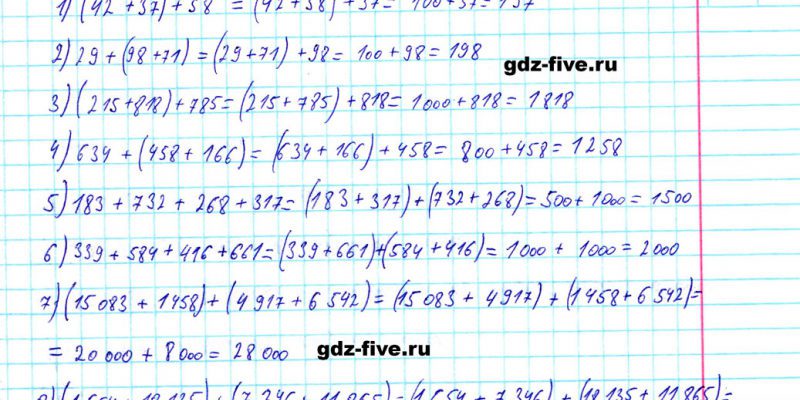 1) (42 + 37) + 58 = (42 + 58) + 37 = 100 + 37 = 137
2) 29 + (98 + 71) = (29 + 71) + 98 = 100 + 98 = 198
gdz-five.ru
3) (215 + 818) + 785 = (215 + 785) + 818 = 1000 + 818 = 1818
4) 634 + (458 + 166) = (634 + 166) + 458 = 800 + 458 = 1258
5) 183 + 732 + 268 + 317 = (183 + 317) + (732 + 268) = 500 + 1000 = 1500
6) 339 + 584 + 416 + 661 = (339 + 661) + (584 + 416) = 1000 + 1000 = 2000
7) (15 083 + 1458) + (4 917 + 6 542) = (15 083 + 4 917) + (1458 + 6 542) =
= 20 000 + 8 000 = 28 000
gdz-five.ru
+ (7 346 + 11 865) = (1 654 + 7 346) + (18 135 + 11 865) =